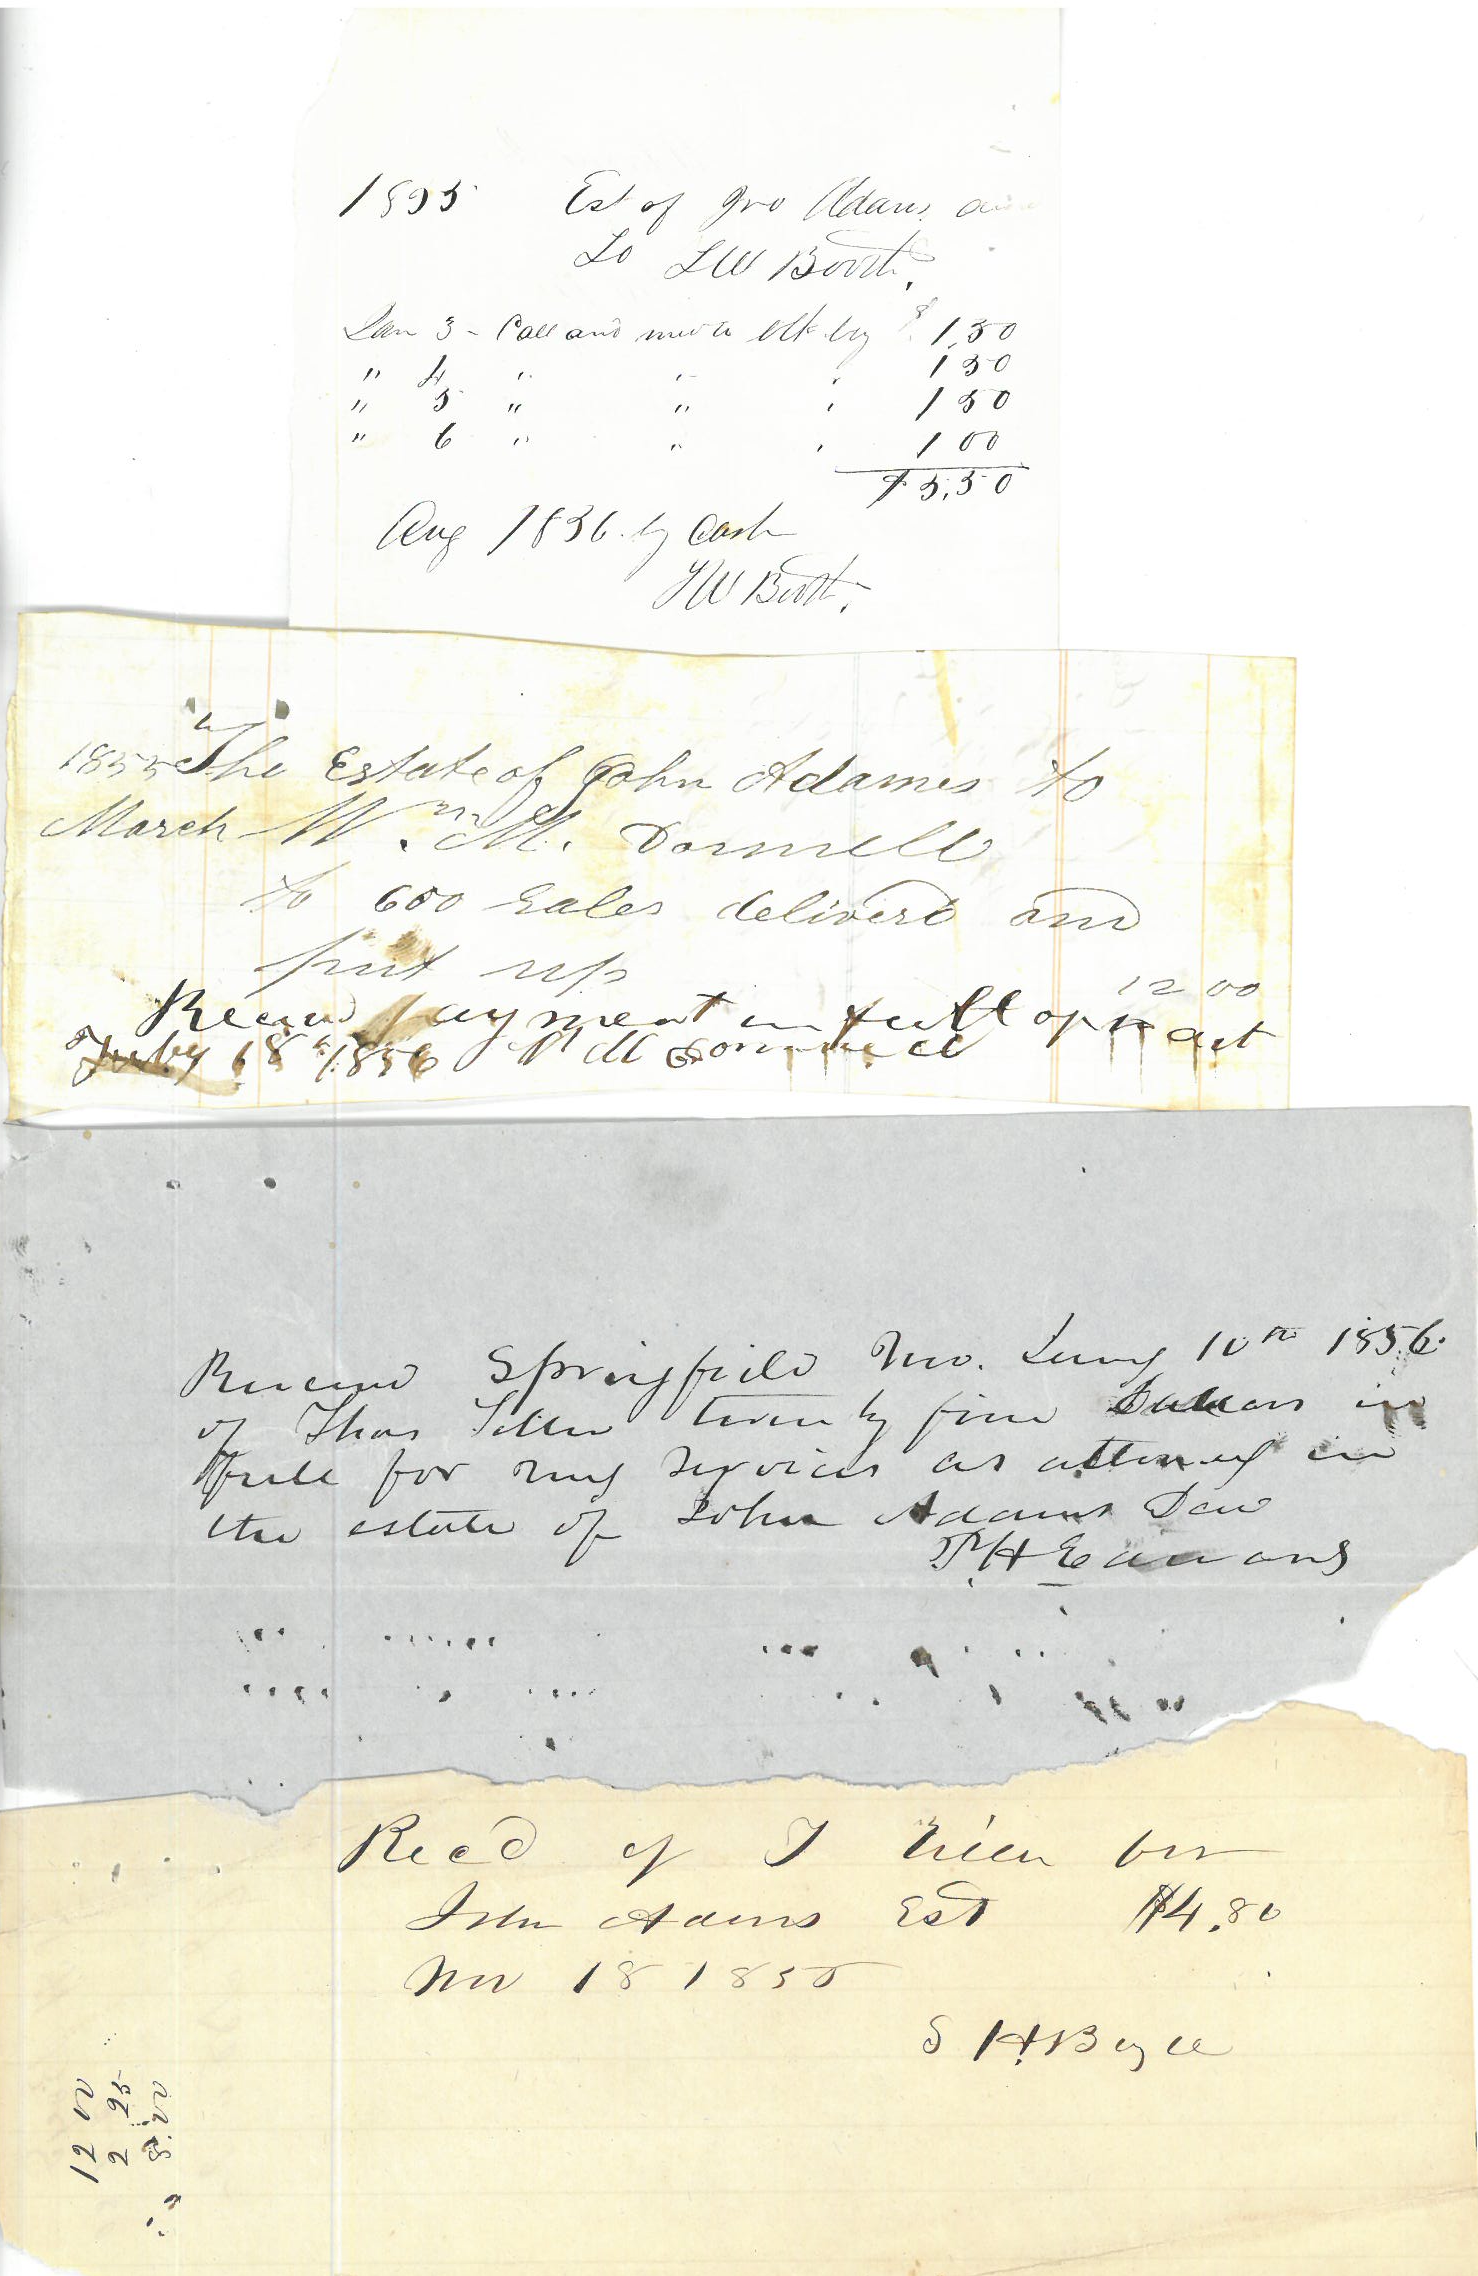 1855 Est of Jno Adams
To L W Booth,
Jan 3 - Call and $ 1,50
" 4 " " " 1 50
" 5 " " " 1 50
" 6 " " " 1 00
$ 5,50
Aug 1856 by Cash
L W Booth,
1855 The Estate of John Adames to
March Wm. M. Dornell
to 600 Rales deliverd and
put up
12 00
Recevd payment in full of acct
July 18 1856 W M Dornnell
Received Springfield Mo. 10th 1856.
of Thos twenty five Dollars in
full for my services as attorney in
the estate of John Adams Decd
P. H. Edwards
Recd of T for
John Adams Est $4.80
Nov 18 1855
S H Boyce
12 00
2 25